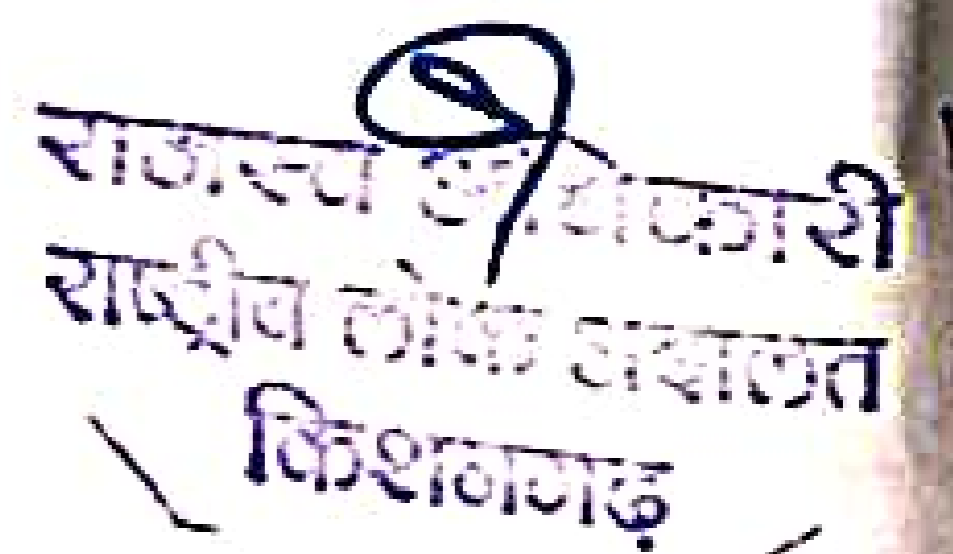 राजस्व अधिकारी
राष्ट्रीय लोक अदालत
किशनगढ़